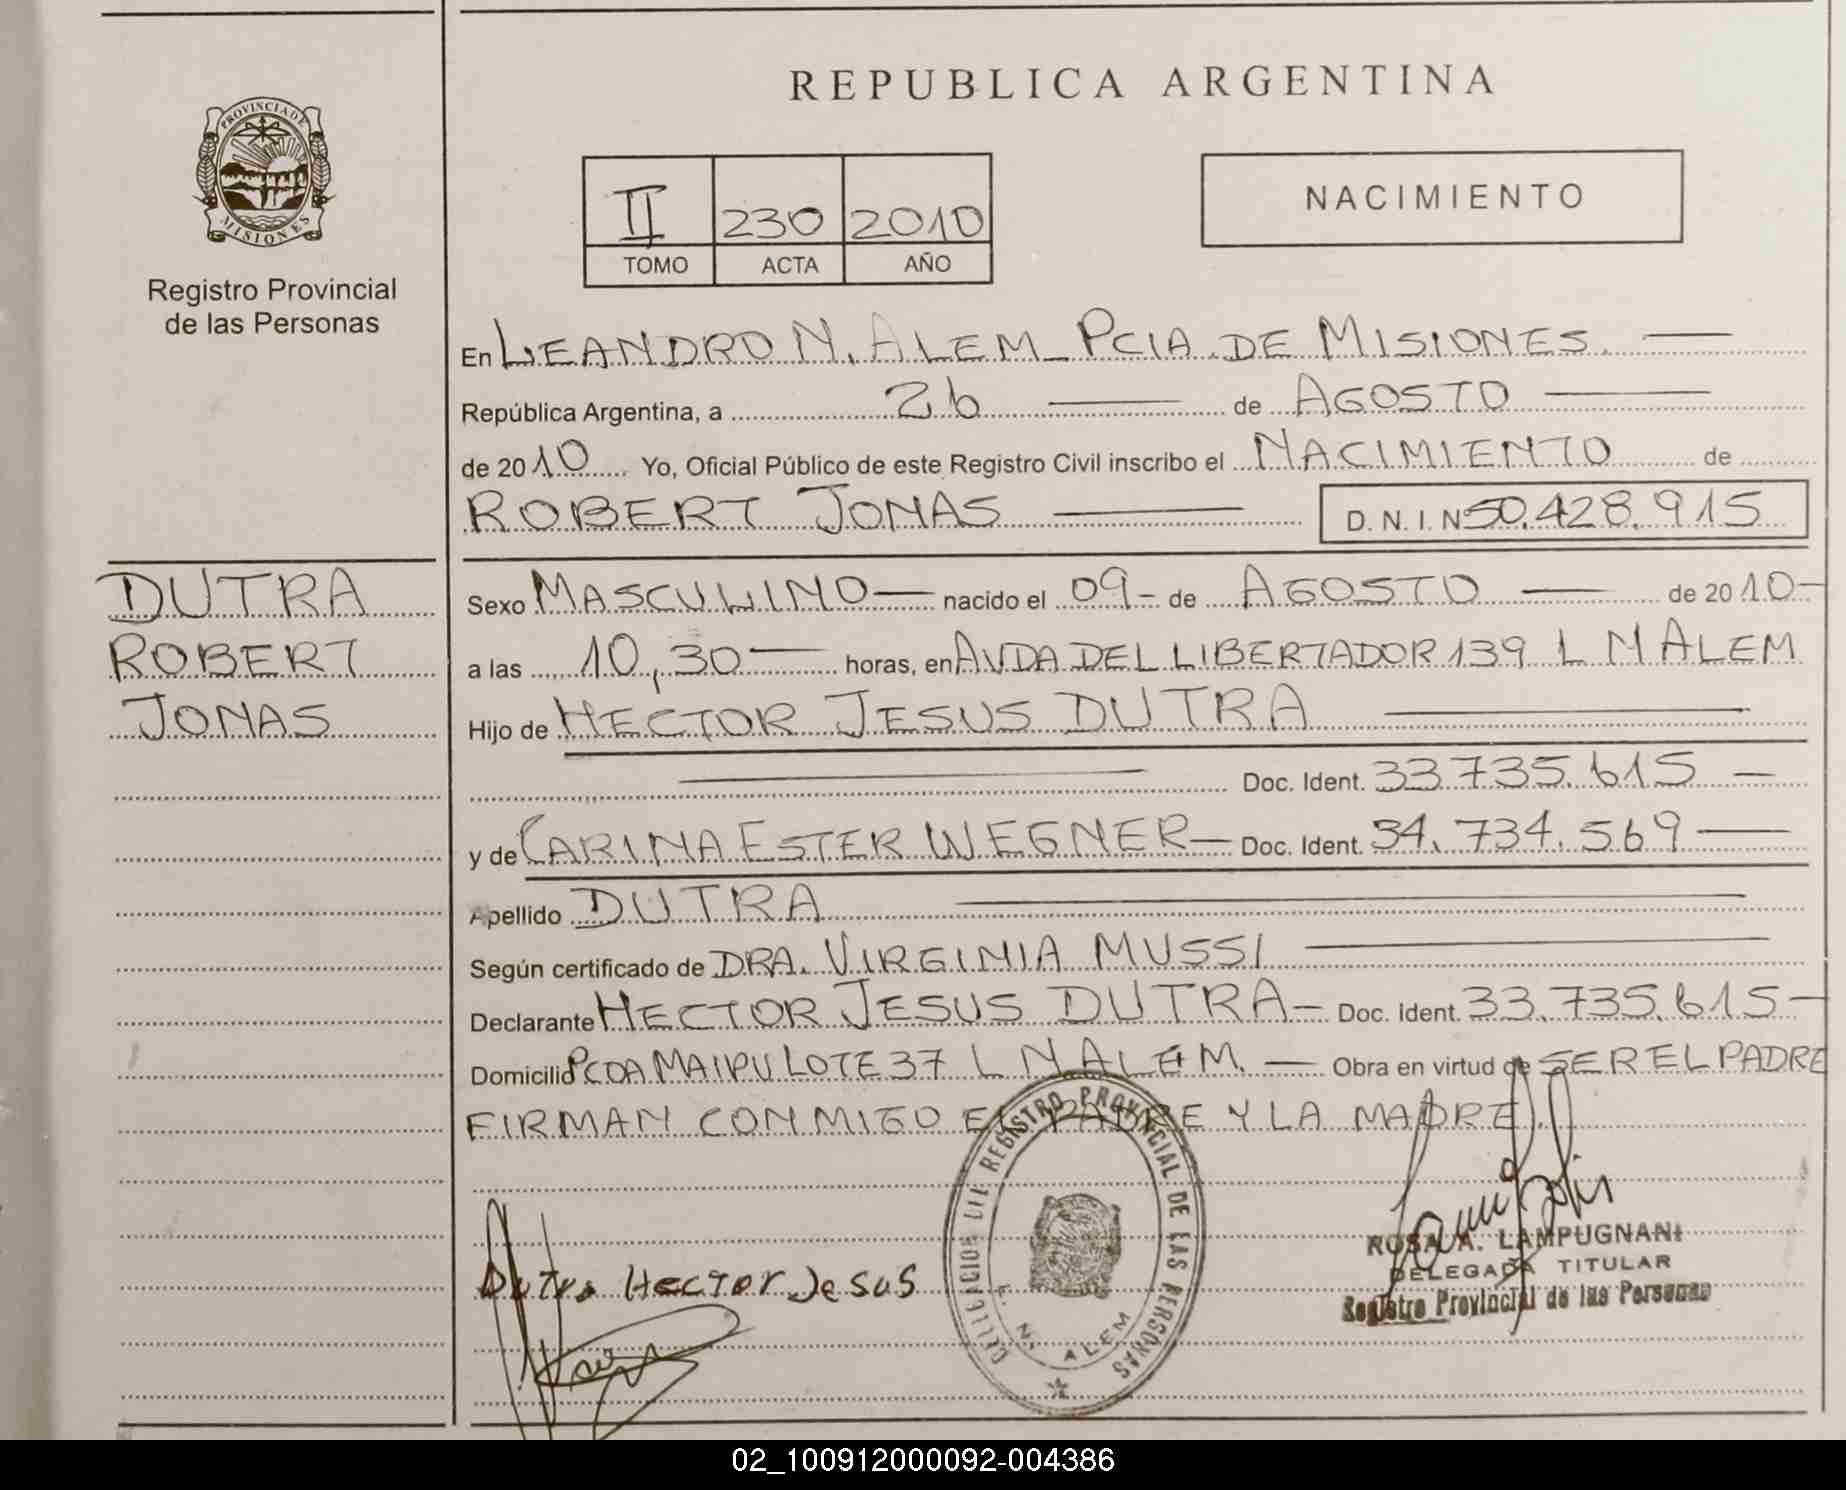 REPUBLICA ARGENTINA
PROVINCIA DE
MISIONES
Registro Provincial
de las Personas
II 230 2010
TOMO ACTA AÑO
NACIMIENTO
En LEANDRO N. ALEM - PCIA. DE MISIONES.
República Argentina, a 26 de AGOSTO
de 2010 Yo, Oficial Público de este Registro Civil inscribo el NACIMIENTO de
ROBERT JONAS D. N. I. N 50.428.915
DUTRA
ROBERT
JONAS
Sexo MASCULINO nacido el 09 - de AGOSTO de 2010 -
a las 10,30 horas, en AVDA DEL LIBERTADOR 139 L N ALEM
Hijo de HECTOR JESUS DUTRA
Doc. Ident. 33.735.615 -
y de CARINA ESTER WEGNER - Doc. Ident. 34.734.569
Apellido DUTRA
Según certificado de DRA. VIRGINIA MUSSI
Declarante HECTOR JESUS DUTRA - Doc. Ident. 33.735.615 -
Domicilio PCDA MAIPU LOTE 37 L N ALEM. - Obra en virtud de SER EL PADRE
FIRMAN CONMIGO EL PADRE Y LA MADRE.
REGISTRO PROVINCIAL DE LAS PERSONAS
L. N. ALEM
Dutra Hector Jesus
ROSA A. LAMPUGNANI
DELEGADA TITULAR
Registro Provincial de las Personas
02_100912000092-004386